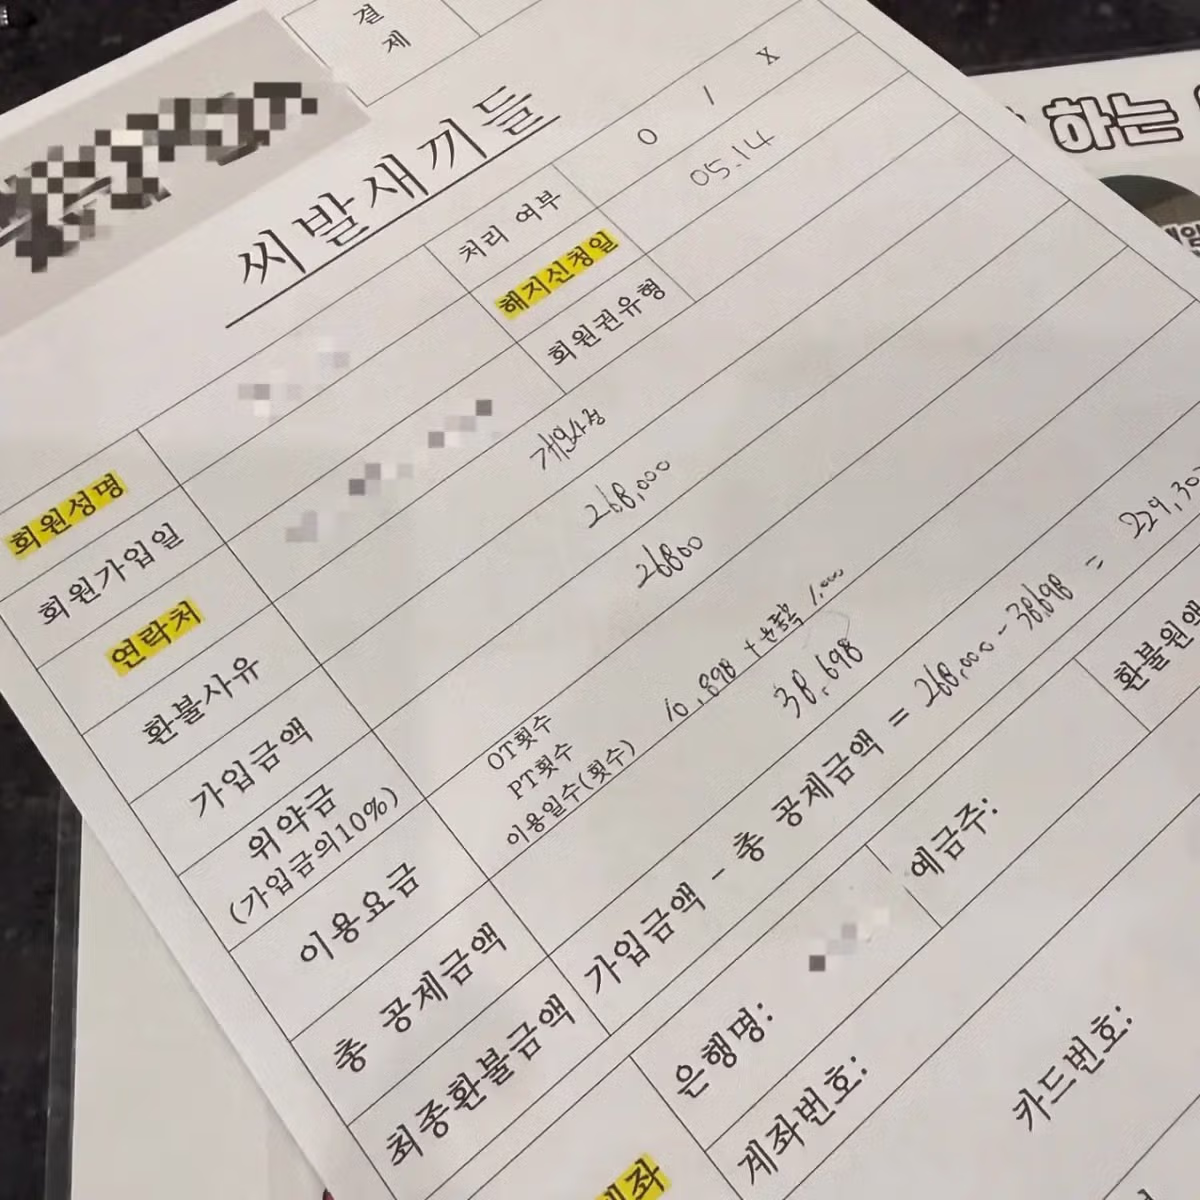 결
제
하는
씨발새끼들
처리 여부
O / X
해지신청일
05.14
회원권유형
회원성명
회원가입일
연락처
환불사유
개인사정
가입금액
268,000
위약금
(가입금의10%)
26800
이용요금
OT횟수
PT횟수
이용일수(횟수)
10,898 + 1,000
총 공제금액
38,698
최종환불금액
가입금액 - 총 공제금액 = 268,000 - 38,698 =
환불원액
은행명:
예금주:
계좌번호:
카드번호: